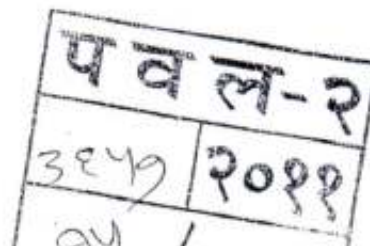 प व ल-२
३६५७ २०११
७५ /